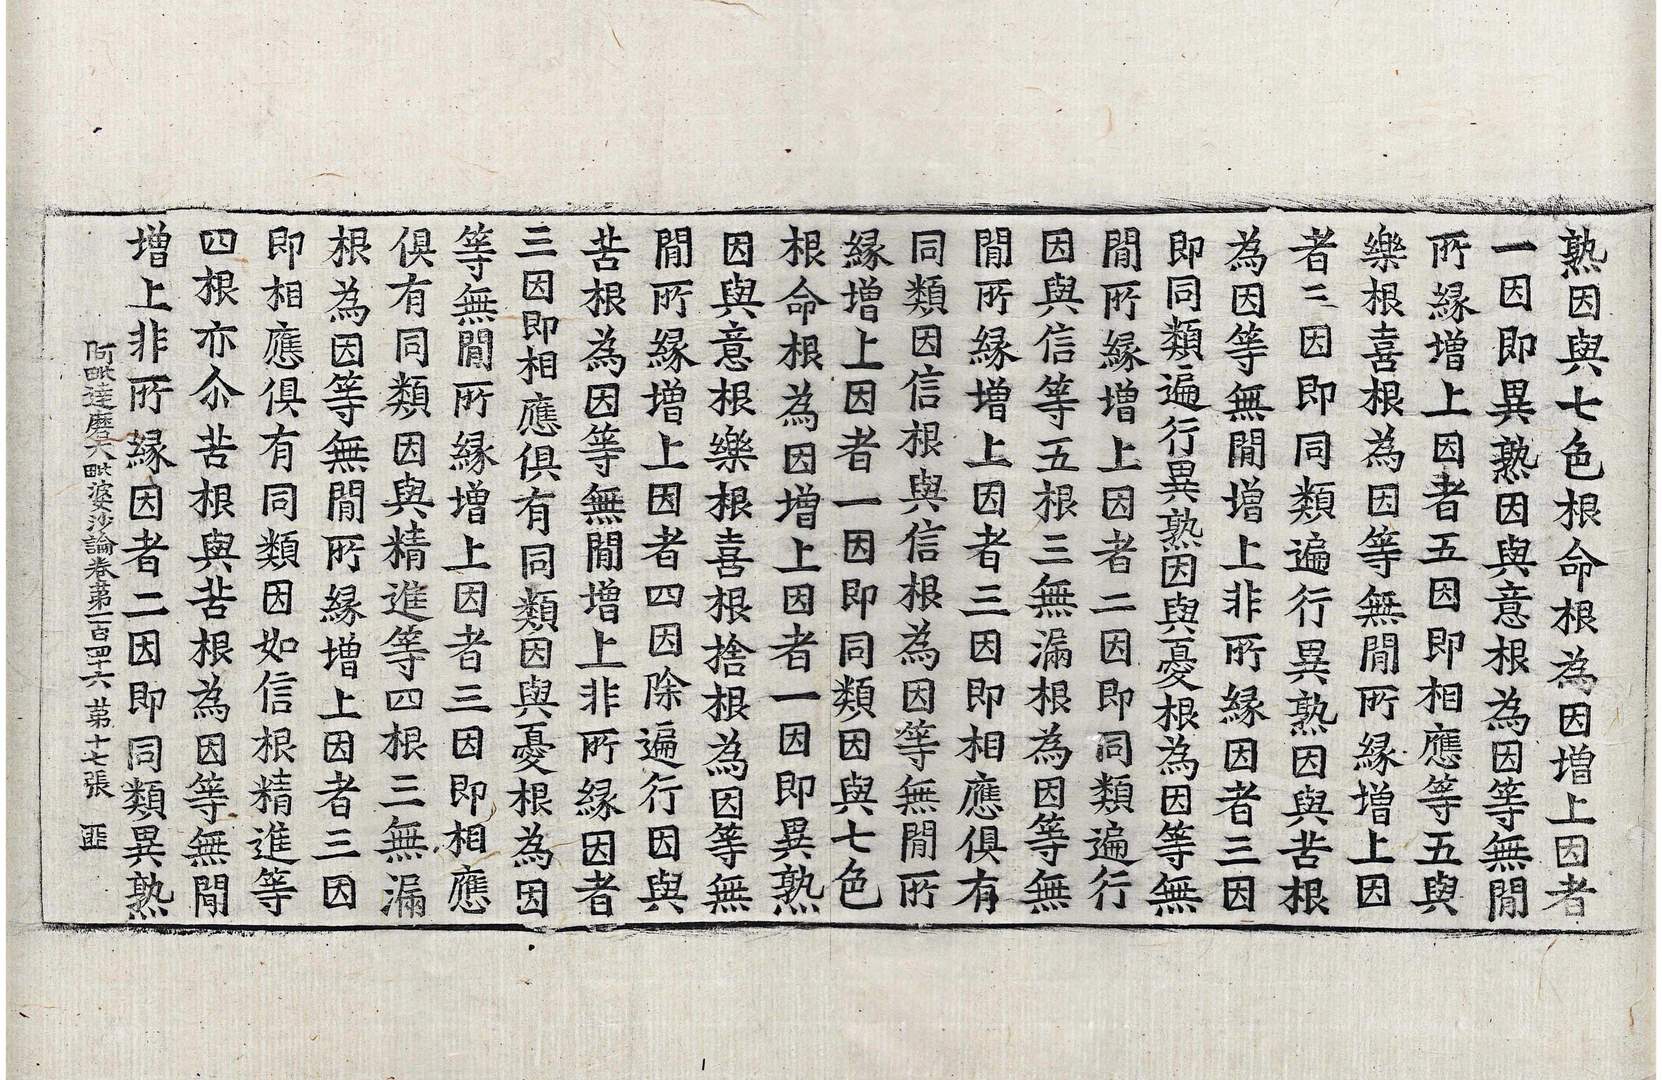 熟因與七色根命根為因增上因者
一因即異熟因與意根為因等無閒
所緣增上因者五因即相應等五與
樂根喜根為因等無閒所緣增上因
者三因即同類遍行異熟因與苦根
為因等無閒增上非所緣因者三因
即同類遍行異熟因與憂根為因等無
閒所緣增上因者二因即同類遍行
因與信等五根三無漏根為因等無
閒所緣增上因者三因即相應俱有
同類因信根與信根為因等無閒所
緣增上因者一因即同類因與七色
根命根為因增上因者一因即異熟
因與意根樂根喜根捨根為因等無
閒所緣增上因者四因除遍行因與
苦根為因等無閒增上非所緣因者
三因即相應俱有同類因與憂根為因
等無閒所緣增上因者三因即相應
俱有同類因與精進等四根三無漏
根為因等無閒所緣增上因者三因
即相應俱有同類因如信根精進等
四根亦尒苦根與苦根為因等無閒
增上非所緣因者二因即同類異熟
阿毗達磨大毗婆沙論卷第一百四十六 第十七張 匪